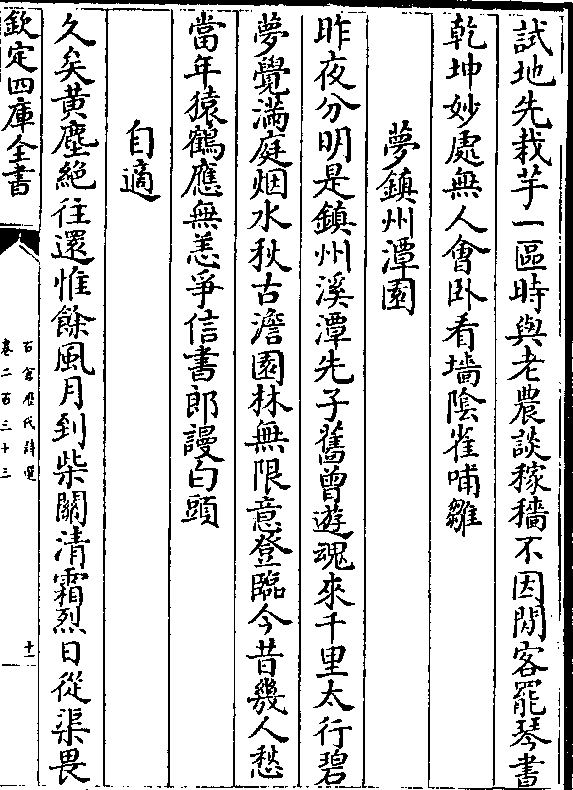 試地先栽芋一區時與老農談稼穡不因閒客罷琴書
乾坤妙處無人會卧看墻陰雀哺雛
夢鎮州潭園
昨夜分明是鎮州溪潭先子舊曾遊魂來千里太行碧
夢覺滿庭烟水秋古澹園林無限意登臨今昔幾人愁
當年猿鶴應無恙爭信書郎謾白頭
自適
久矣黃塵絶往還惟餘風月到柴關清霜烈日從渠畏
欽定四庫全書
卷二百三十三
十一